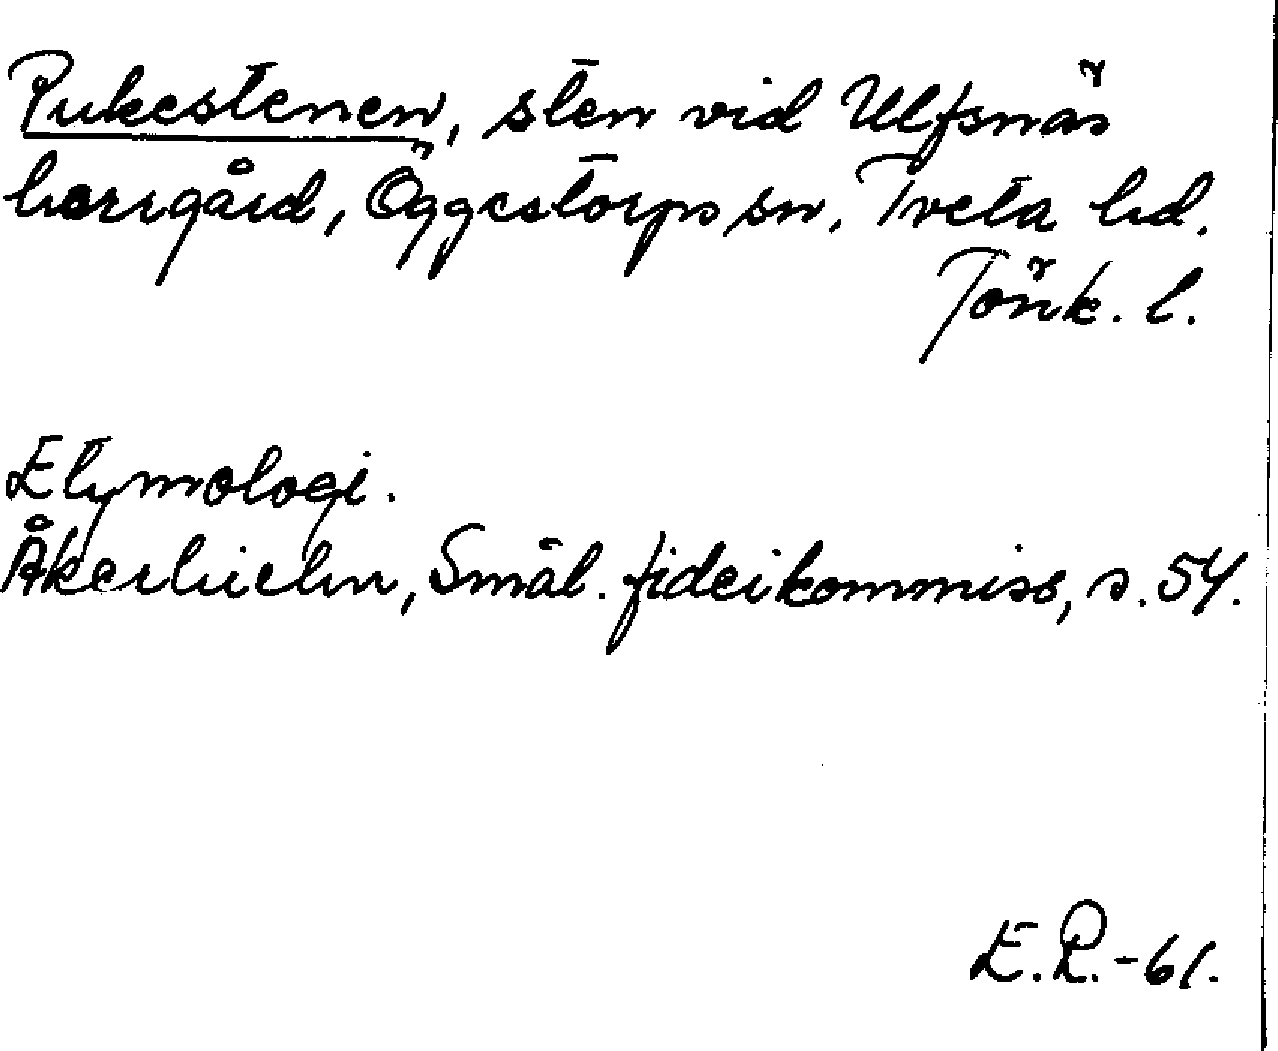 Pukestenen, sten vid Ulfsnäs
herrgård, Öggestorps sn. Tveta hd.
Jönk. l.
Etymologi.
Åkerhielm, Smål. fideikommiss, s. 54.
E.R.-61.